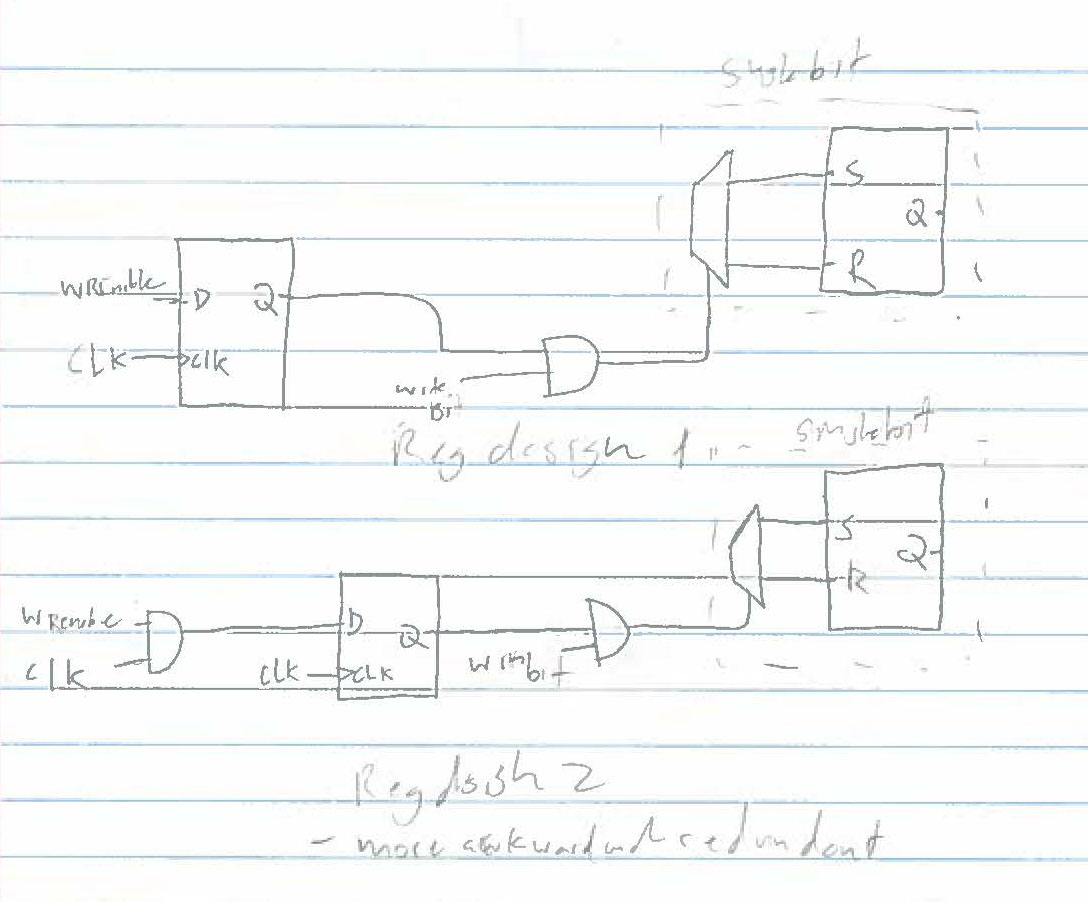 single bit
S
Q
R
WREnable
D Q
CLK clk
write
Bit
Reg design 1
single bit
S
Q
R
WREnable
D
Q
clk
clk CLK
Write bit
Reg design 2
- more awkward and redundant